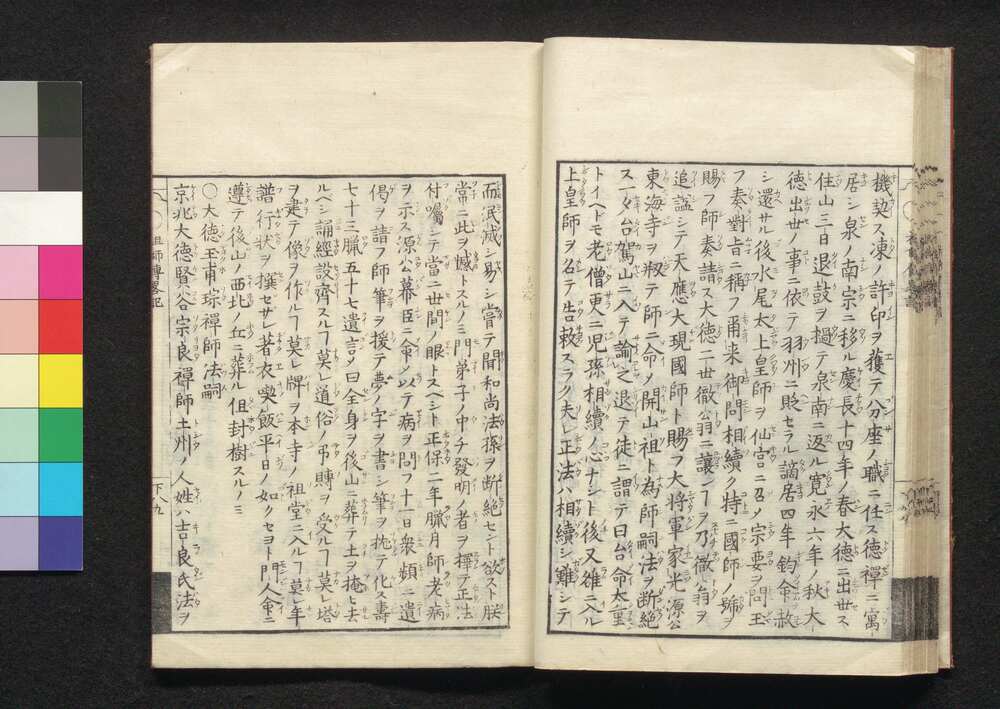 機契ス凍ノ許印ヲ獲テ分座ノ職ニ任ス徳禪ニ寓
居シ泉ノ南宗ニ移ル慶長十四年ノ春大徳ニ出世ス
住山三日退鼓ヲ撾テ泉南ニ返ル寛永六年ノ秋大
徳出世ノ事ニ依テ羽州ニ貶セラル謫居四年鈞命赦
シ還サル後水尾太上皇師ヲ仙宮ニ召メ宗要ヲ問玉
フ奏對旨ニ稱フ爾来御問相續ク特ニ國師ノ號ヲ
賜フ師奏請ス大徳二世徹翁ニ讓ンヿヲ乃徹翁ヲ
追謚シテ天應大現國師ト賜フ大将軍家光源公
東海寺ヲ剏テ師ニ命ノ開山祖ト為師嗣法ヲ断絶
ス一々台駕山ニ入テ論之退テ徒ニ謂テ曰台命太重
トイヘトモ老僧更ニ児孫相續ノ心ナシト後又雒ニ入ル
上皇師ヲ召テ告敕スラク夫レ正法ハ相續シ難シテ
而泯滅シ易シ嘗テ聞和尚法孫ヲ断絶セント欲スト朕
常ニ此ヲ憾トスルノミ門弟子ノ中チ發明ノ者ヲ擇テ正法
付囑シテ當ニ世間ノ眼トスヘシト正保二年臘月師老病
ヲ示ス源公幕臣ニ命ノ以テ病ヲ問フ十一日衆頻ニ遺
偈ヲ請フ師筆ヲ援テ夢ノ字ヲ書シ筆ヲ抛テ化ス壽
七十三臘五十七遺言ノ曰全身ヲ後山ニ葬テ土ヲ掩ヒ去
ルヘシ誦經設齊スルヿ莫レ道俗ノ吊賻ヲ受ルヿ莫レ塔
ヲ建テ像ヲ作ルヿ莫レ牌ヲ本寺ノ祖堂ニ入ルヿ莫レ年
譜行状ヲ撰セサレ著衣喫飯平日ノ如クセヨト門人重ニ
遵テ後山ノ西北ノ丘ニ葬ル但封樹スルノミ
〇大徳玉甫琮禪師法嗣
京兆大徳賢谷宗良禪師土州ノ人姓ハ吉良氏法ヲ
祖師傳畧記
下八九